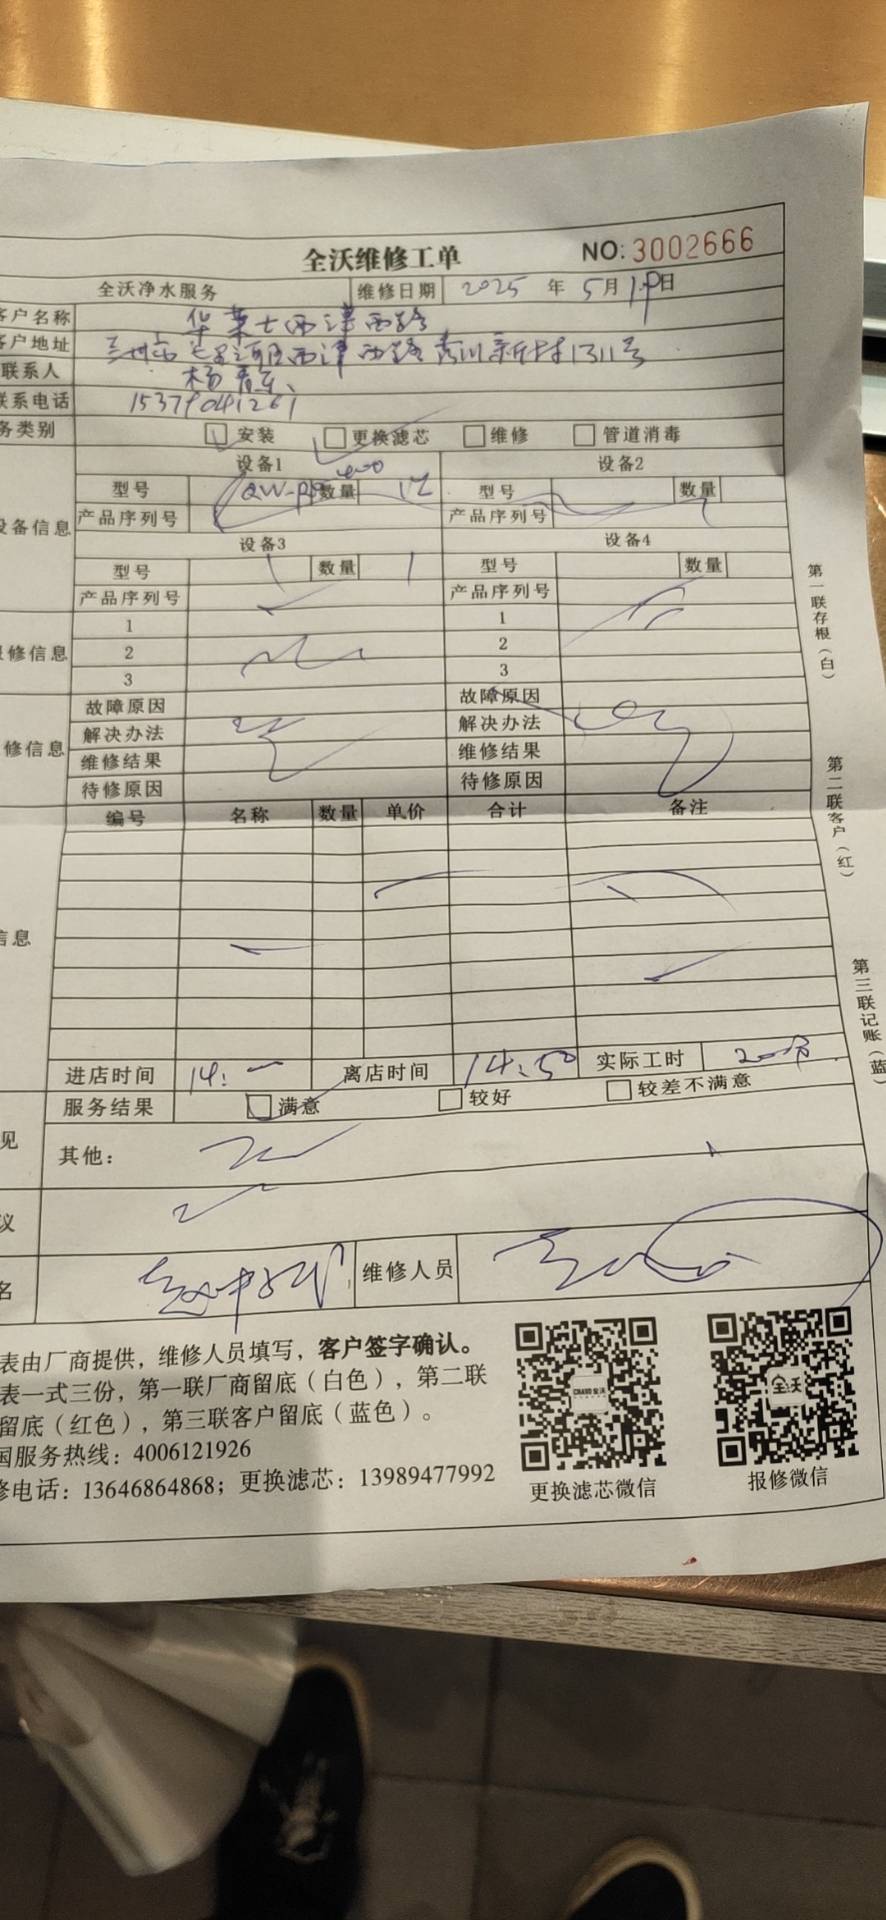 全沃维修工单 NO: 3002666
全沃净水服务 维修日期 2025 年 5月19日
客户名称 华莱士西津西路
客户地址 兰州市七里河区西津西路秀川新村1311号
联系人 杨
联系电话 15379041261
务类别 安装 更换滤芯 维修 管道消毒
设备1 设备2
型号 QW-RO-400 数量 型号 数量
设备信息 产品序列号 产品序列号
设备3 设备4
型号 数量 1 型号 数量
产品序列号 产品序列号
1 1
修信息 2 2
3 3
故障原因 故障原因
修信息 解决办法 解决办法
维修结果 维修结果
待修原因 待修原因
编号 名称 数量 单价 合计 备注
信息
进店时间 14: 离店时间 14:50 实际工时 20分
服务结果 满意 较好 较差不满意
见 其他：
议
名 维修人员
表由厂商提供，维修人员填写，客户签字确认。
表一式三份，第一联厂商留底（白色），第二联
留底（红色），第三联客户留底（蓝色）。
国服务热线：4006121926
修电话：13646864868；更换滤芯：13989477992
全沃
更换滤芯微信 报修微信
第一联存根（白）
第二联客户（红）
第三联记账（蓝）